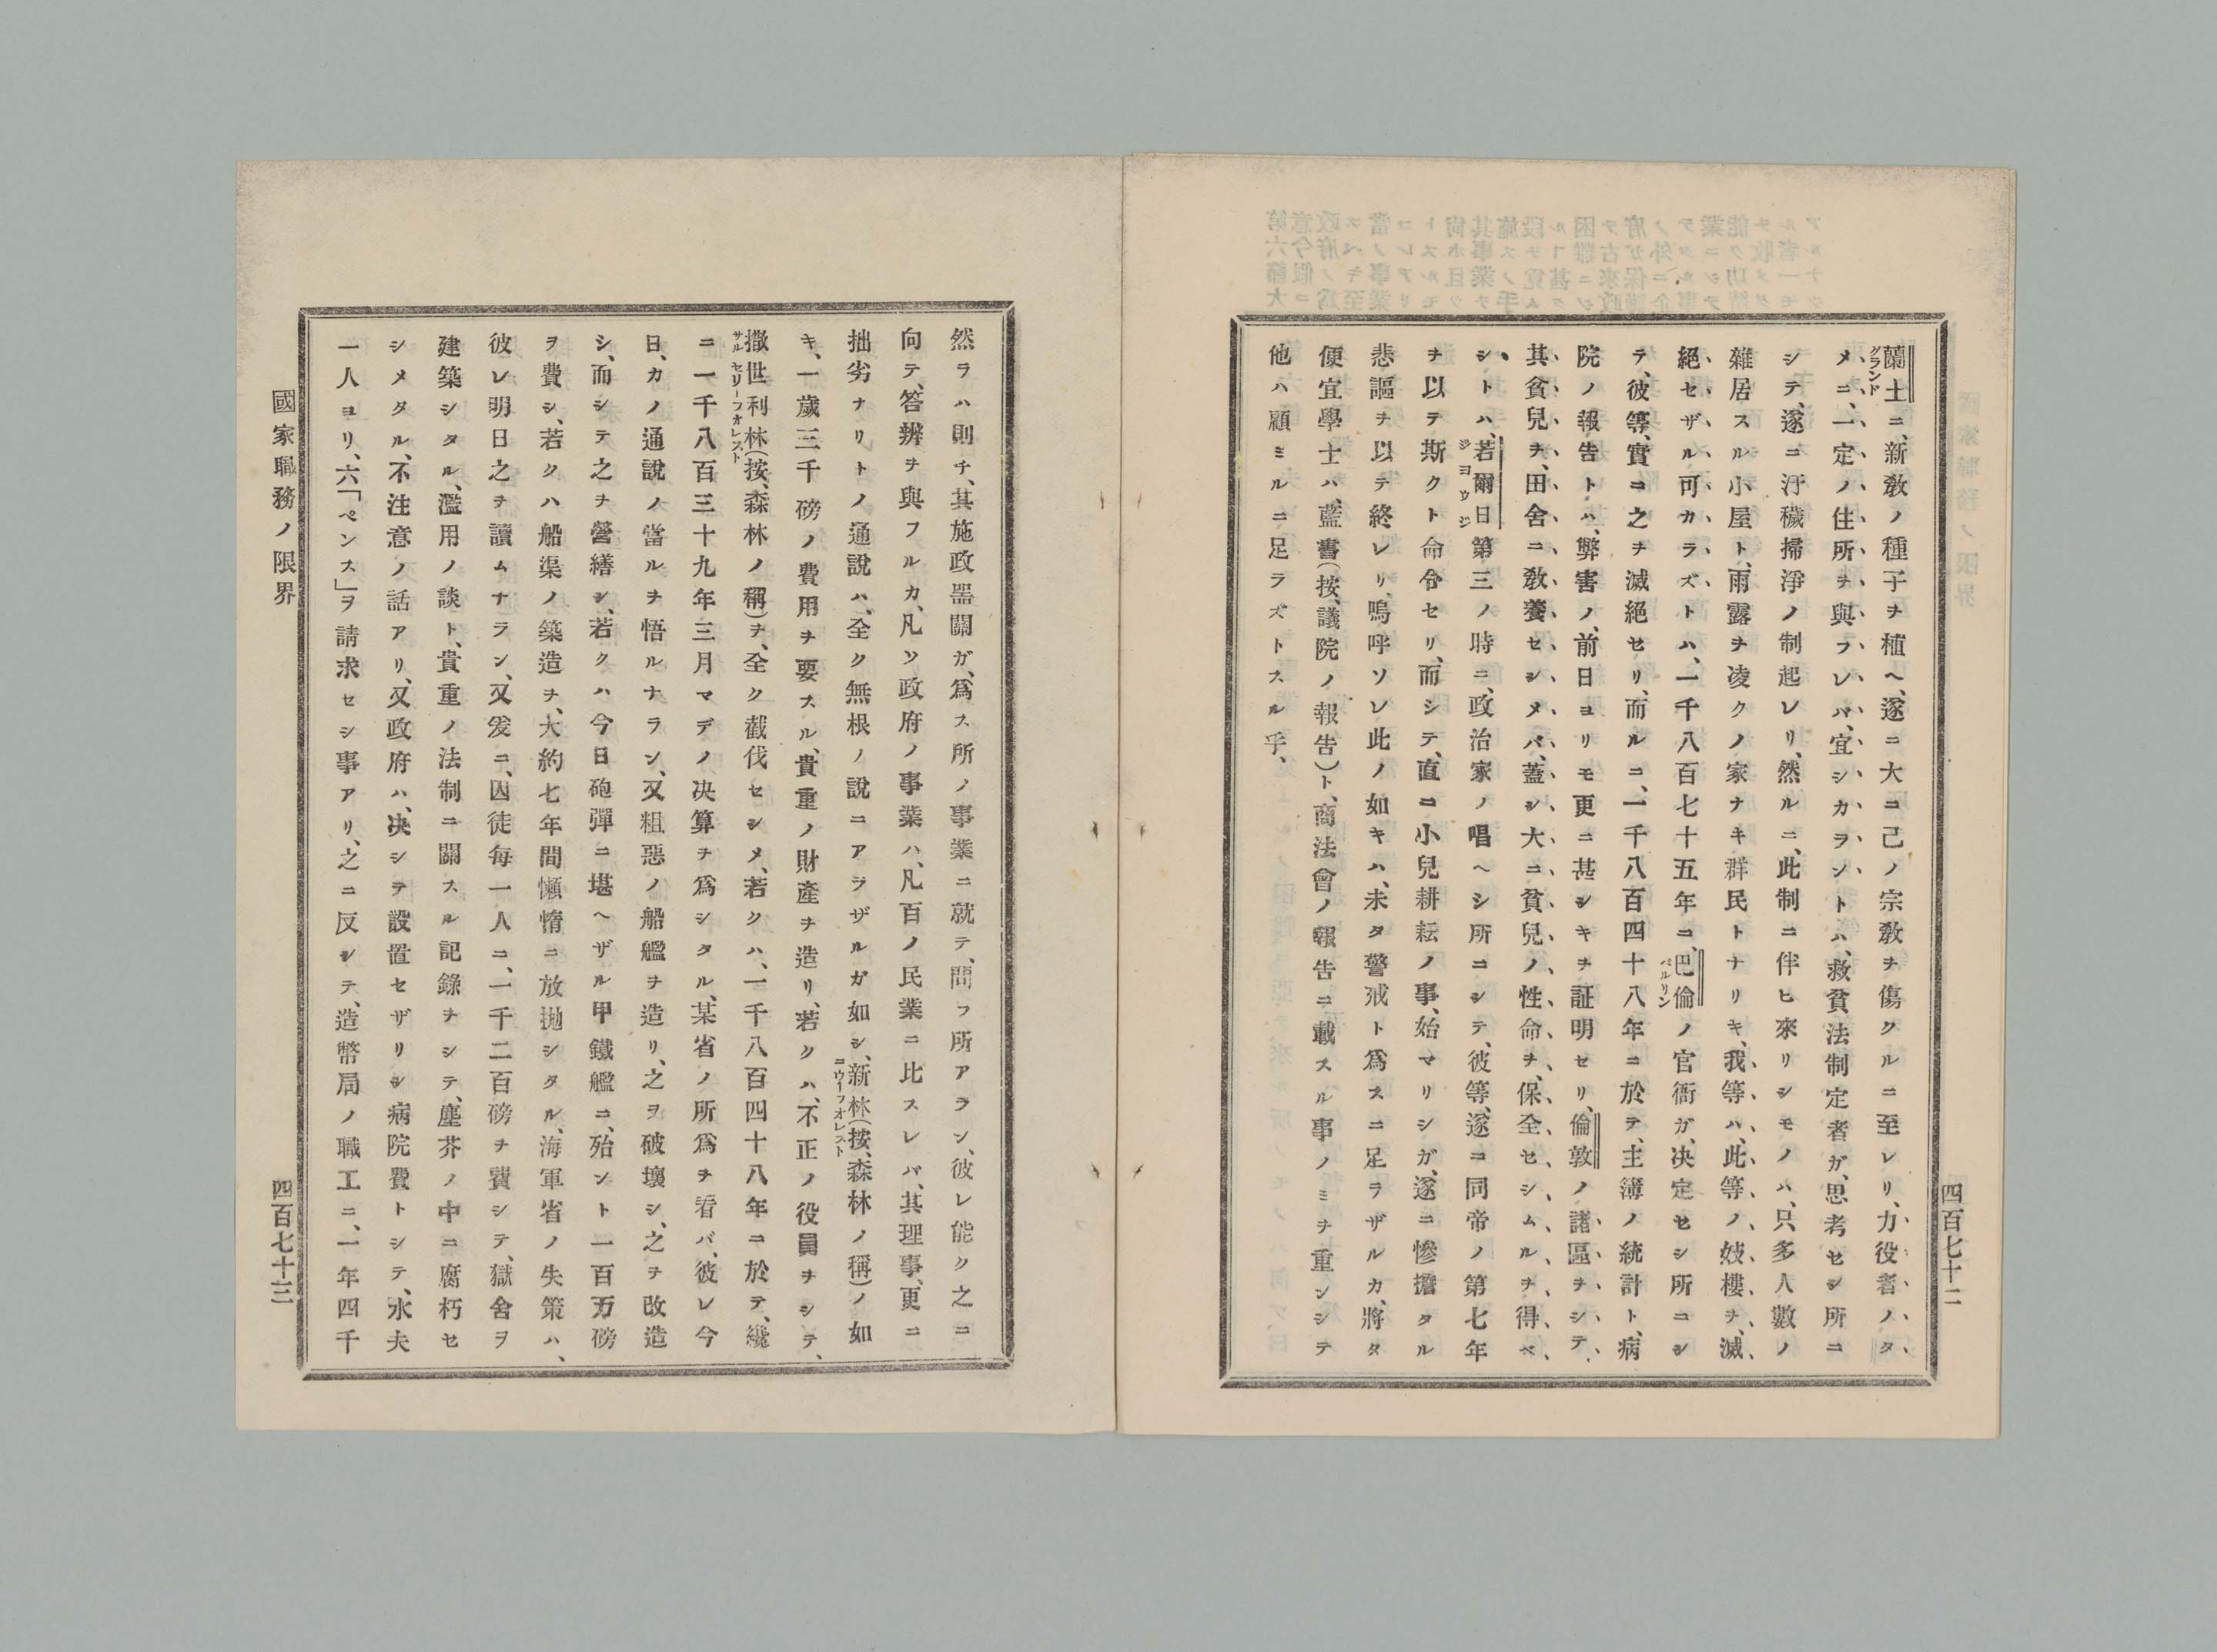 蘭土ニ、新敎ノ種子ヲ植ヘ、遂ニ大ニ己ノ宗敎ヲ傷クルニ至レリ、力役者ノタ
グランド
メニ、一定ノ住所ヲ與フレバ、宜シカラントハ、救貧法制定者ガ、思考セシ所ニ
シテ、遂ニ汙穢掃淨ノ制起レリ、然ルニ、此制ニ伴ヒ來リシモノハ、只多人數ノ
雜居スル小屋ト、雨露ヲ凌クノ家ナキ群民トナリキ、我等ハ、此等ノ妓樓ヲ、滅
絕セザル可カラズトハ、一千八百七十五年ニ、巴倫ノ官衙ガ、决定セシ所ニシ
ベルリン
テ、彼等、實ニ之ヲ滅絕セリ、而ルニ、一千八百四十八年ニ於テ、主簿ノ統計ト、病
院ノ報吿トハ、弊害ノ、前日ヨリモ更ニ甚シキヲ証明セリ、倫敦ノ諸區ヲシテ、
其貧兒ヲ、田舍ニ敎養セシメバ、蓋シ大ニ貧兒ノ性命ヲ、保全セシムルヲ得ベ
シトハ、若爾日第三ノ時ニ、政治家ノ唱ヘシ所ニシテ、彼等、遂ニ同帝ノ第七年
ジヨウジ
ヲ以テ斯クト命令セリ、而シテ、直ニ小兒耕耘ノ事、始マリシガ、遂ニ慘擔タル
悲謳ヲ以テ終レリ、嗚呼ソレ此ノ如キハ、未タ警戒ト爲スニ足ラザルカ、將タ
便宜學士ハ、藍書(按、議院ノ報吿)ト、商法會ノ報吿ニ載スル事ノミヲ重ンシテ
他ハ顧ミルニ足ラズトスル乎、
四百七十二
然ラハ則チ、其施政器關ガ、爲ス所ノ事業ニ就テ、問フ所アラン、彼レ能ク之ニ
向テ、答辨ヲ與フルカ、凡ソ政府ノ事業ハ、凡百ノ民業ニ比スレバ、其理事、更ニ
拙劣ナリトノ通說ハ、全ク無根ノ說ニアラザルガ如シ、新林(按、森林ノ稱)ノ如
ニウーフオレスト
キ、一歲三千磅ノ費用ヲ要スル、貴重ノ財產ヲ造リ、若クハ、不正ノ役員ヲシテ、
撒世利林(按、森林ノ稱)ヲ、全ク截伐セシメ、若クハ、一千八百四十八年ニ於テ、纔
サルセリーフオレスト
ニ一千八百三十九年三月マデノ决算ヲ爲シタル、某省ノ所爲ヲ看バ、彼レ今
日、カノ通說ノ當ルヲ悟ルナラン、又粗惡ノ船艦ヲ造リ、之ヲ破壞シ、之ヲ改造
シ、而シテ之ヲ營繕シ、若クハ今日砲彈ニ堪ヘザル甲鐵艦ニ、殆ント一百万磅
ヲ費シ、若クハ船渠ノ築造ヲ、大約七年間懶惰ニ放拋シタル、海軍省ノ失策ハ、
彼レ明日之ヲ讀ムナラン、又爰ニ、囚徒每一人ニ、一千二百磅ヲ費シテ、獄舍ヲ
建築シタル、濫用ノ談ト、貴重ノ法制ニ關スル記錄ヲシテ、塵芥ノ中ニ腐朽セ
シメタル、不注意ノ話アリ、又政府ハ、决シテ設置セザリシ病院費トシテ、水夫
一人ヨリ、六「ペンス」ヲ請求セシ事アリ、之ニ反シテ、造幣局ノ職工ニ、一年四千
國家職務ノ限界
四百七十三